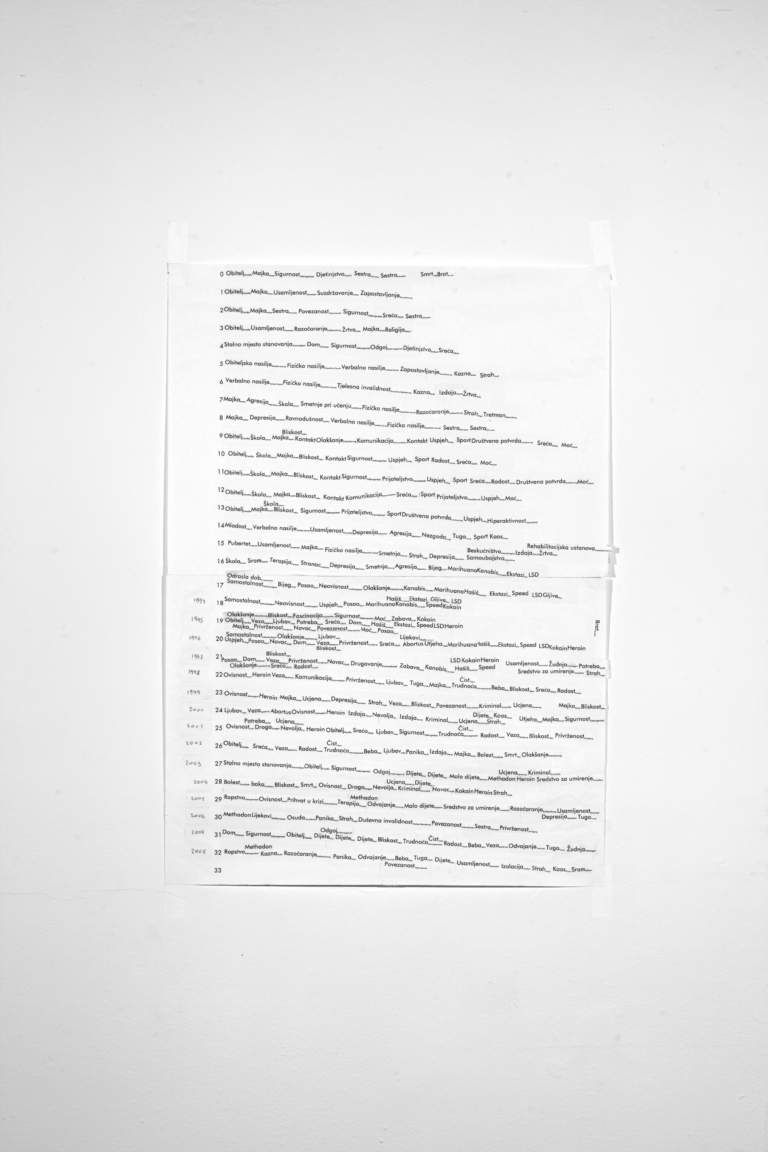 0 Obitelj__Majka__Sigurnost____ Djetinjstvo__ Sestra__ Sestra___ Smrt__Brat__
1 Obitelj__Majka__Usamljenost__ Suzdržavanje__ Zapostavljanje____
2 Obitelj__Majka__Sestra__ Povezanost___ Sigurnost___Sreća__ Sestra__
3 Obitelj__Usamljenost__Razočaranje___Žrtva__ Majka__Religija__
4 Stalno mjesto stanovanja____Dom__ Sigurnost__Odgoj___Djetinjstvo__Sreća__
5 Obiteljsko nasilje____Fizičko nasilje___Verbalno nasilje___Zapostavljanje__ Kazna__ Strah__
6 Verbalno nasilje___Fizičko nasilje___Tjelesna invalidnost_____Kazna__ Izdaja__Žrtva__
7 Majka__Agresija__Škola__ Smetnje pri učenju__Fizičko nasilje____Razočaranje___Strah__Tretman___
8 Majka__ Depresija__Ravnodušnost__Verbalno nasilje__Fizičko nasilje___ Sestra__ Sestra__
Bliskost__
9 Obitelj__Škola__ Majka__KontaktOlakšanje___Komunikacija___Kontakt Uspjeh__ SportDruštvena potvrda___ Sreća__ Moć__
10 Obitelj__ Škola__Majka__Bliskost__ Kontakt Sigurnost___ Uspjeh__ Sport Radost__Sreća__ Moć__
11 Obitelj__Škola__Majka__Bliskost__ Kontakt Sigurnost___Prijateljstvo___Uspjeh__ Sport Sreća__Radost__Društvena potvrda___Moć__
12 Obitelj__Škola__ Majka__Bliskost__ Kontakt Komunikacija___Sreća__ Sport Prijateljstvo___Uspjeh__Moć__
Škola__
13 Obitelj__Majka__Bliskost__ Sigurnost___ Prijateljstvo___ SportDruštvena potvrda___Uspjeh__Hiperaktivnost___
14 Mladost__Verbalno nasilje___Usamljenost__Depresija__ Agresija__ Nezgoda__ Tuga__ Sport Kaos__
Rehabilitacijska ustanova____
15 Pubertet__Usamljenost__ Majka__ Fizičko nasilje____Smetnja__ Strah__ Depresija__ Beskućništvo___Izdaja__Žrtva__
Samoubojstvo___
16 Škola__ Sram__ Terapija__ Stranac__Depresija__ Smetnja__Agresija__ Bijeg__MarihuanaKanabis__ Ekstazi__LSD
Odraslo dob___
17 Samostalnost___ Bijeg__Posao__Neovisnost___ Olakšanje___Kanabis__ MarihuanaHašiš__ Ekstazi__Speed LSDGljive__
Hašiš__Ekstazi_Gljive_LSD
1994 18 Samostalnost___Neovisnost___ Uspjeh__Posao__MarihuanaKanabis__SpeedKokain
Olakšanje___Bliskost__Fascinacija___Sigurnost___ Moć__Zabava__Kokain
1995 19 Obitelj__Veza__Ljubav__Potreba__Sreća__ Dom__Hašiš__ Ekstazi_SpeedLSDHeroin Brat__
Majka__Privrženost___Novac__Povezanost___Moć__Posao__
Samostalnost___Olakšanje___ Ljubav__ Lijekovi___
1996 20 Uspjeh__Posao__Novac__Dom__Veza__Privrženost___Sreća__ AbortusUtjeha__MarihuanaHašiš__Ekstazi_Speed LSDKokainHeroin
Bliskost__
Bliskost__ LSDKokainHeroin Usamljenost__ Žudnja__ Potreba__
1997 21 Posao__Dom__ Veza__Privrženost___Novac__Drugovanje___ Zabava__ Kanabis__ Hašiš__ Speed Sredstvo za umiranje___Strah__
Olakšanje___Sreća__Radost__
Čist__
1998 22 Ovisnost__Heroin Veza__Komunikacija___ Privrženost___Ljubav__ Tuga__Majka__Trudnoća___Beba__Bliskost__ Sreća__Radost__
1999 23 Ovisnost__Heroin Majka__Ucjena__Depresija__ Strah__Veza__Bliskost__Povezanost___Kriminal__Ucjena__ Majka__Bliskost__
Dijete__Kaos__
2000 24 Ljubav__Veza__AbortusOvisnost___Heroin Izdaja__Nevolja__ Izdaja__ Kriminal__Ucjena__Strah__ Utjeha__Majka__Sigurnost___
Potreba__ Ucjena__ Čist__
2001 25 Ovisnost__Droga__Nevolja__ Heroin Obitelj__Sreća__ Ljubav__Sigurnost___Trudnoća___ Radost__ Veza__Bliskost__ Privrženost___
Čist__
2002 26 Obitelj__ Sreća__Veza__ Radost__Trudnoća___Beba__Ljubav__Panika__Izdaja__Majka__Bolest__ Smrt__Olakšanje___
Ucjena__Kriminal__
2003 27 Stalno mjesto stanovanja____Obitelj__Sigurnost___Odgoj___Dijete__Dijete__ Malo dijete___Methadon Heroin Sredstvo za umiranje___
Ucjena__Dijete__
2004 28 Bolest__ baka__Bliskost__Smrt__Ovisnost__Droga__Nevolja__Kriminal__Novac__KokainHeroinStrah__
Methadon
2005 29 Ropstvo___Ovisnost__Prihvat u krizi___Terapija__Odvajanje__Malo dijete___Sredstvo za umiranje___Razočaranje___Usamljenost__
Depresija__Tuga__
2006 30 MethadonLijekovi___ Osuda__Panika__Strah__Duševna invalidnost____ Povezanost___Sestra__Privrženost___
Odgoj___ Čist__
2007 31 Dom__ Sigurnost___ Obitelj__Dijete__Dijete__ Dijete__Bliskost__Trudnoća___Radost__Beba__Veza__Odvajanje__ Tuga__ Žudnja__
Methadon
2008 32 Ropstvo___Kazna__Razočaranje___ Panika__Odvajanje__Beba__Tuga__Dijete__Usamljenost__ Izolacija__ Strah__ Kaos__Sram__
Povezanost___
33